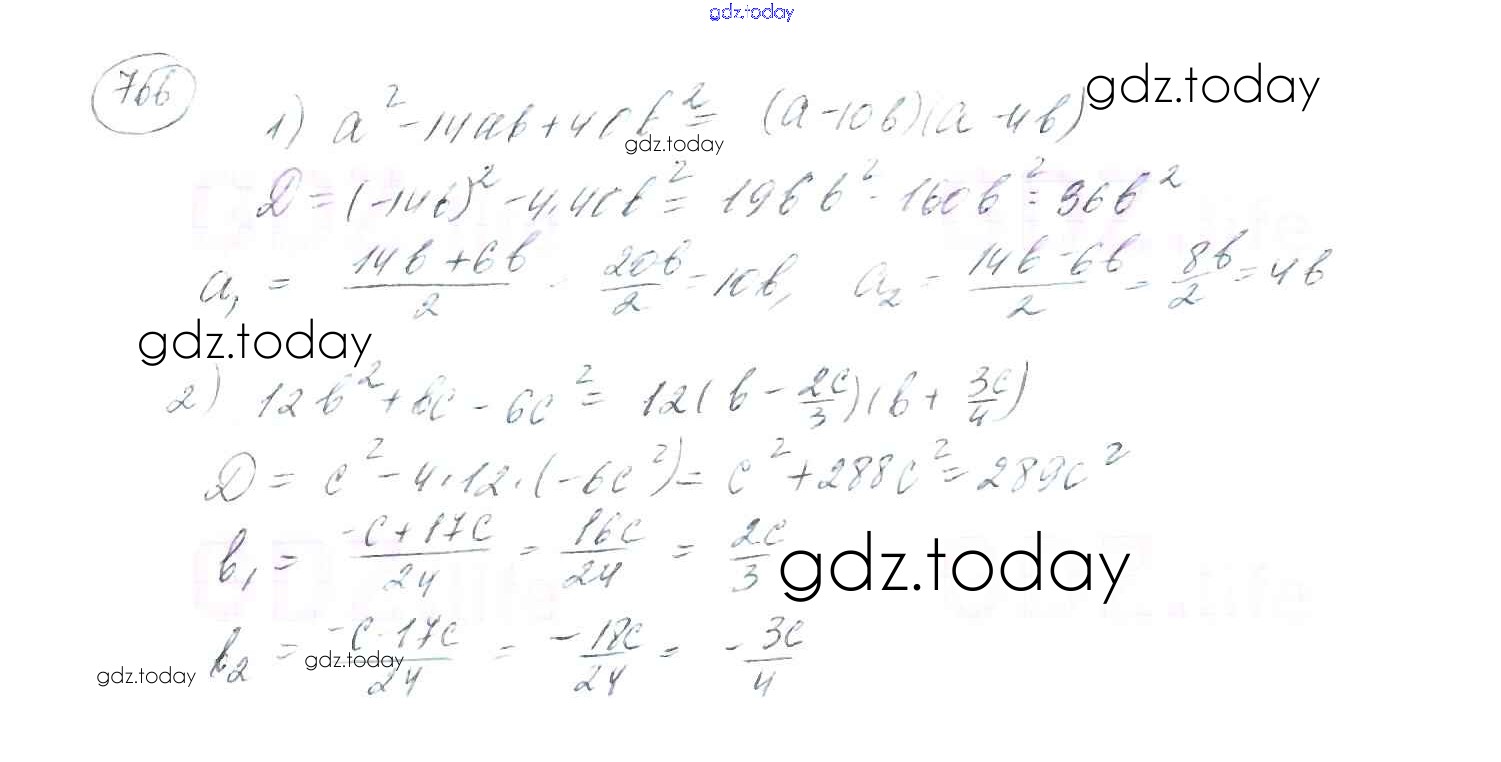 gdz.today
766
gdz.today
1) a² - 14ab + 40b² = (a - 10b)(a - 4b)
gdz.today
D = (-14b)² - 4·40b² = 196b² - 160b² = 36b²
a₁ = (14b + 6b)/2 = 20b/2 = 10b, a₂ = (14b - 6b)/2 = 8b/2 = 4b
gdz.today
2) 12b² + bc - 6c² = 12(b - 2c/3)(b + 3c/4)
D = c² - 4·12·(-6c²) = c² + 288c² = 289c²
b₁ = (-c + 17c)/24 = 16c/24 = 2c/3
gdz.today
b₂ = (-c - 17c)/24 = -18c/24 = -3c/4
gdz.today
gdz.today